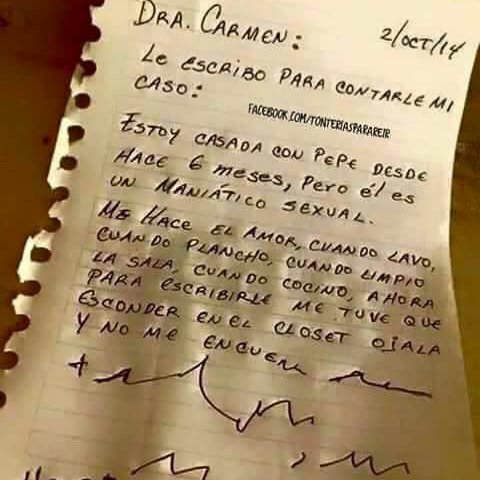 DRA. CARMEN:
2/OCT/14
LE ESCRIBO PARA CONTARLE MI
CASO:
FACEBOOK.COM/TONTERIASPARAREIR
ESTOY CASADA CON PEPE DESDE
HACE 6 MESES, PERO ÉL ES
UN MANIÁTICO SEXUAL.
ME HACE EL AMOR, CUANDO LAVO,
CUANDO PLANCHO, CUANDO LIMPIO
LA SALA, CUANDO COCINO, AHORA
PARA ESCRIBIRLE ME TUVE QUE
ESCONDER EN EL CLOSET OJALA
Y NO ME ENCUEN